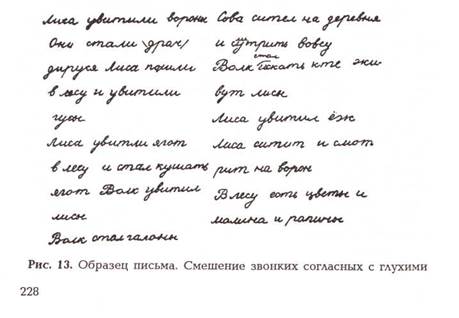 Лиса увитили ворон
Они стали драч/
дируся Лиса пошли
в лесу и увитили
гуси
Лиса увитли ягот
в лесу и стал кушать
ягот Волк увитил
лисы
Волк стал галоны
Сова сител на деревня
и трить вовсу
Волк стал искать кте жи
вут лисы
Лиса увитил ёж
Лиса ситит и смот
рит на ворон
В лесу есть цветы и
малина и рапины
Рис. 13. Образец письма. Смешение звонких согласных с глухими
228